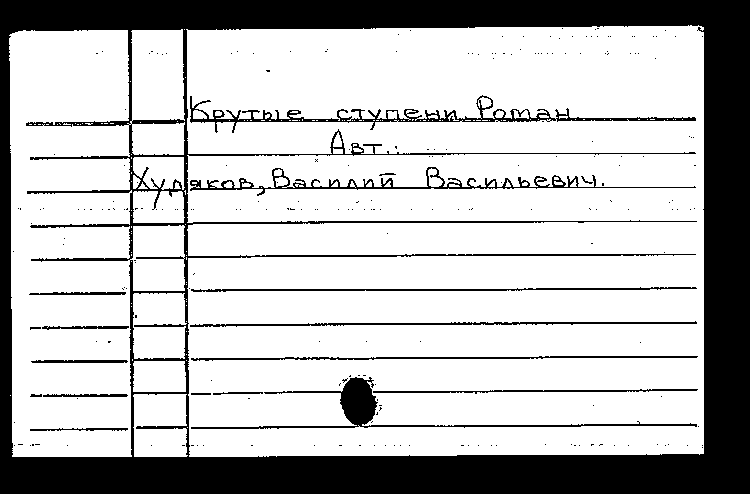 Крутые ступени. Роман
Авт.:
Худяков, Василий Васильевич.